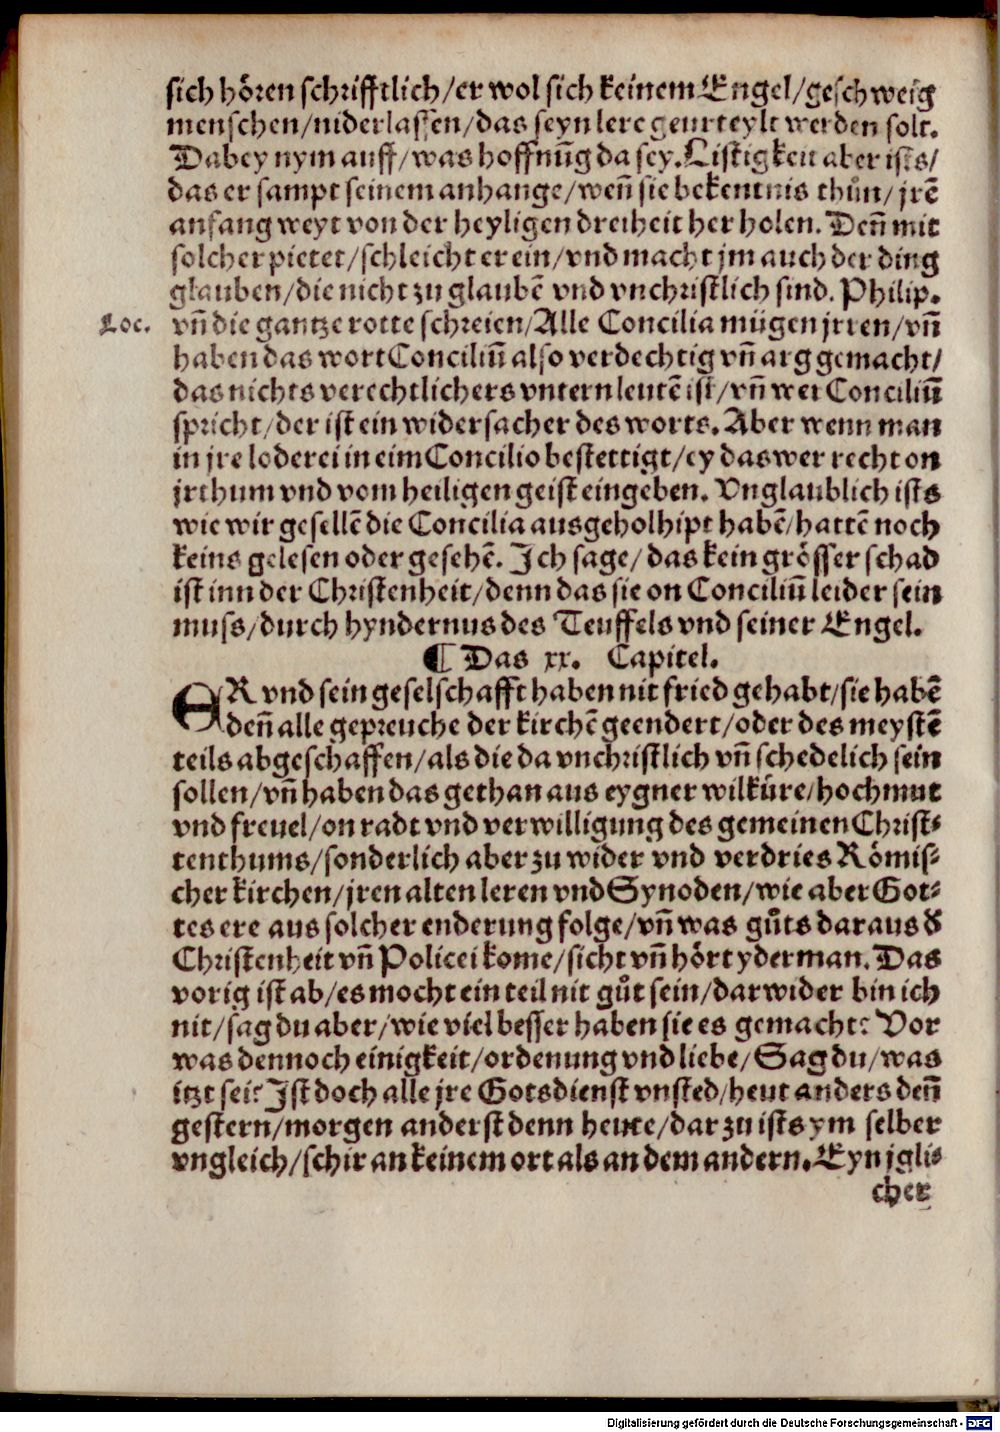 sich hören schrifftlich/er wol sich keinem Engel/geschweig
menschen/niderlassen/das seyn lere geurteylt werden solt.
Dabey nym auff/was hoffnūg da sey. Listigkeit aber ists/
das er sampt seinem anhange/weñ sie bekentnis thůn/jrē
anfang weyt von der heyligen dreiheit her holen. Deñ mit
solcher pietet/schleicht er ein/vnd macht jm auch der ding
glauben/die nicht zu glaubē vnd vnchristlich sind. Philip.
Loc. vñ die gantze rotte schreien/Alle Concilia mügen jrren/vñ
haben das wort Conciliū also verdechtig vñ arg gemacht/
das nichts verechtlichers vntern leutē ist/vñ wer Conciliū
spricht/der ist ein widersacher des worts. Aber wenn man
in jre loderei in eim Concilio bestettigt/ey das wer recht on
jrthum vnd vom heiligen geist eingeben. Vnglaublich ists
wie wir gesellē die Concilia ausgeholhipt habē/hattē noch
keins gelesen oder gesehē. Ich sage/das kein grösser schad
ist inn der Christenheit/denn das sie on Conciliū leider sein
muss/durch hyndernus des Teuffels vnd seiner Engel.
¶ Das xx. Capitel.
ER vnd sein geselschafft haben nit fried gehabt/sie habē
deñ alle gepreuche der kirchē geendert/oder des meystē
teils abgeschaffen/als die da vnchristlich vñ schedelich sein
sollen/vñ haben das gethan aus eygner wilküre/hochmut
vnd freuel/on radt vnd verwilligung des gemeinen Christ⸗
tenthums/sonderlich aber zu wider vnd verdries Römis⸗
cher kirchen/jren alten leren vnd Synoden/wie aber Got⸗
tes ere aus solcher enderung folge/vñ was gůts daraus d̕
Christenheit vñ Policei kome/sicht vñ hört yderman. Das
vorig ist ab/es mocht ein teil nit gůt sein/darwider bin ich
nit/sag du aber/wie viel besser haben sie es gemacht? Vor
was dennoch einigkeit/ordenung vnd liebe/Sag du/was
itzt sei? Ist doch alle jre Gotsdienst vnsted/heut anders deñ
gestern/morgen anderst denn heute/dar zu ists ym selber
vngleich/schir an keinem ort als an dem andern. Eyn jgli⸗
cher
Digitalisierung gefördert durch die Deutsche Forschungsgemeinschaft - DFG